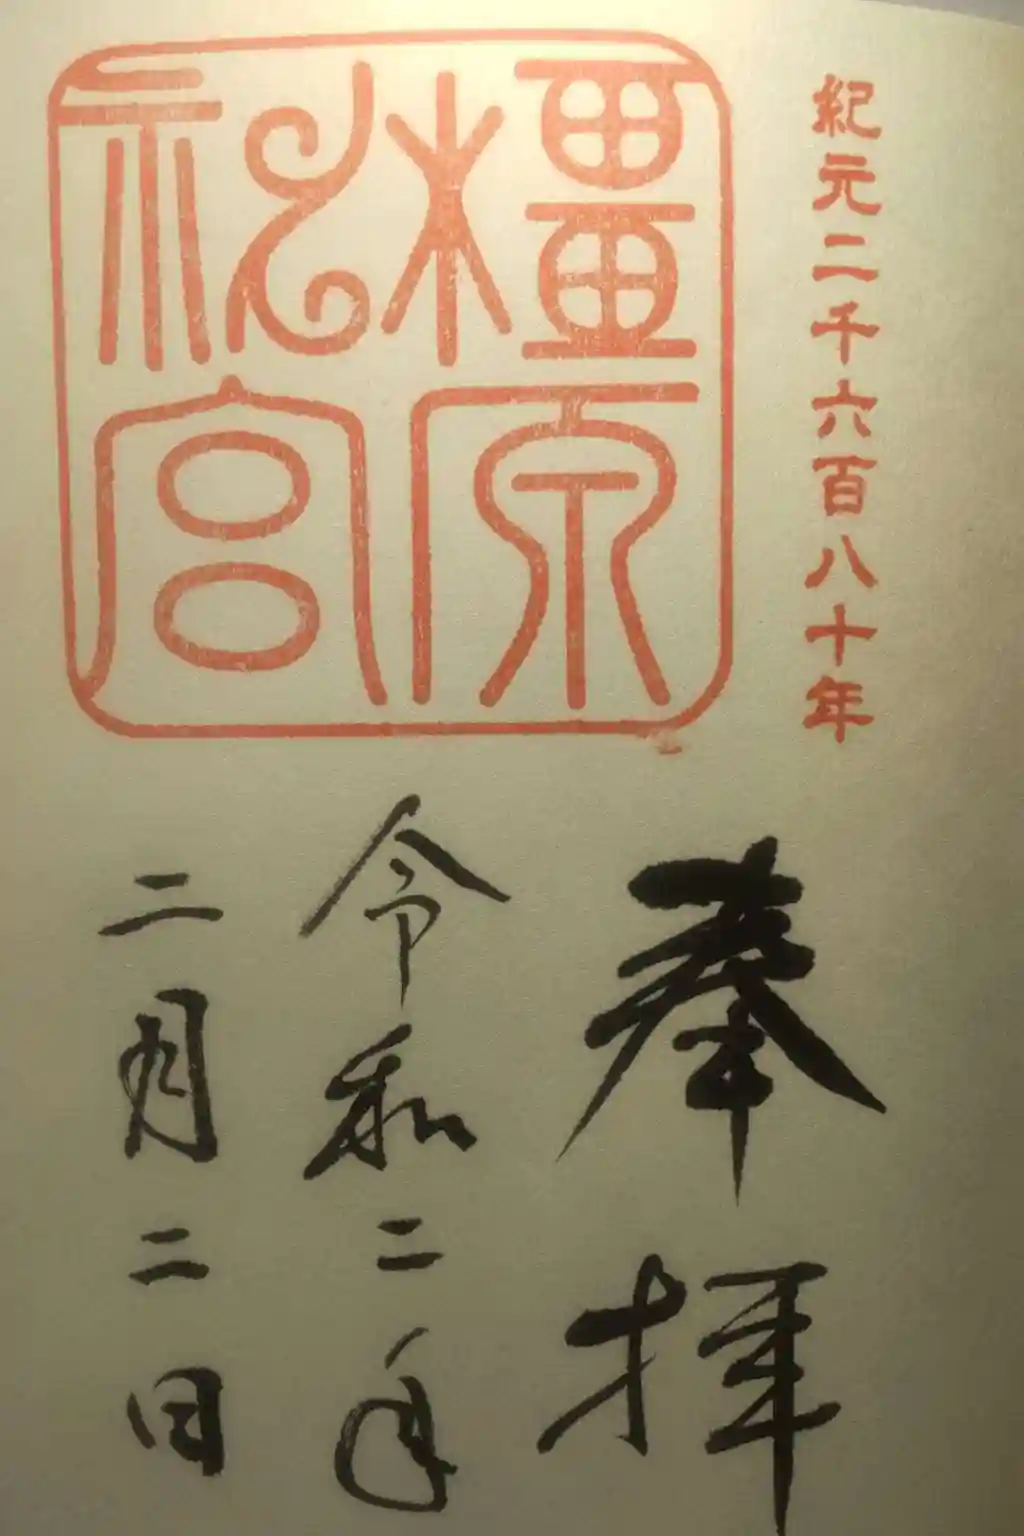 紀元二千六百八十年
橿原神宮
奉拝
令和二年
二月二日